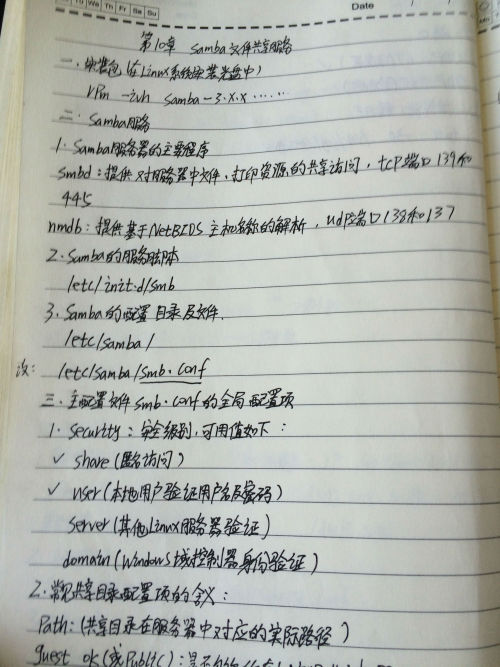 Tu We Th Fr Sa Su
Date
第10章 Samba文件共享服务
一、安装包(在Linux系统安装光盘中)
rpm -ivh samba-3.x.x ......
二、Samba服务
1. Samba服务器的主要程序
smbd：提供对服务器中文件，打印资源的共享访问，tcp端口139和
445
nmdb：提供基于NetBIOS主机名称的解析，udp端口138和137
2. Samba的服务脚本
/etc/init.d/smb
3. Samba的配置目录及文件.
/etc/samba/
/etc/samba/smb.conf
三、主配置文件smb.conf的全局配置项
1. security：安全级别，可用值如下：
✓ share(匿名访问)
✓ user(本地用户验证用户名及密码)
server(其他Linux服务器验证)
domain(windows域控制器身份验证)
2. 常见共享目录配置项的含义：
Path：(共享目录在服务器中对应的实际路径)
guest ok(或Public)：是否